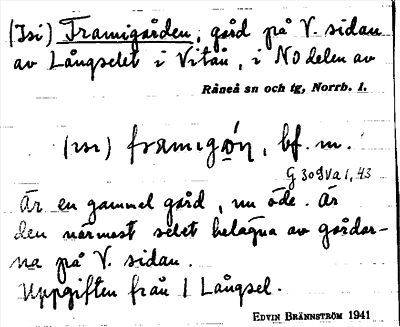 (Isi) Framigården, gård på V. sidan
av Långselet i Vitån, i NO delen av
Råneå sn och tg, Norrb. l.
framigó̱n, bf. m.
G 309 Va 1, 43
Är en gammal gård, nu öde. Är
den närmast selet belägna av gårdar-
na på V. sidan.
Uppgiften från 1 Långsel.
EDVIN BRÄNNSTRÖM 1941